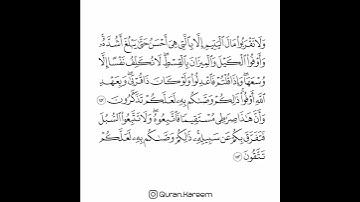 وَلَا تَقْرَبُوا۟ مَالَ ٱلْيَتِيمِ إِلَّا بِٱلَّتِى هِىَ أَحْسَنُ حَتَّىٰ يَبْلُغَ أَشُدَّهُۥ
وَأَوْفُوا۟ ٱلْكَيْلَ وَٱلْمِيزَانَ بِٱلْقِسْطِ لَا نُكَلِّفُ نَفْسًا إِلَّا
وُسْعَهَا وَإِذَا قُلْتُمْ فَٱعْدِلُوا۟ وَلَوْ كَانَ ذَا قُرْبَىٰ وَبِعَهْدِ
ٱللَّهِ أَوْفُوا۟ ذَٰلِكُمْ وَصَّىٰكُم بِهِۦ لَعَلَّكُمْ تَذَكَّرُونَ ١٥٢
وَأَنَّ هَٰذَا صِرَٰطِى مُسْتَقِيمًا فَٱتَّبِعُوهُ وَلَا تَتَّبِعُوا۟ ٱلسُّبُلَ
فَتَفَرَّقَ بِكُمْ عَن سَبِيلِهِۦ ذَٰلِكُمْ وَصَّىٰكُم بِهِۦ لَعَلَّكُمْ
تَتَّقُونَ ١٥٣
Quran.Kareem